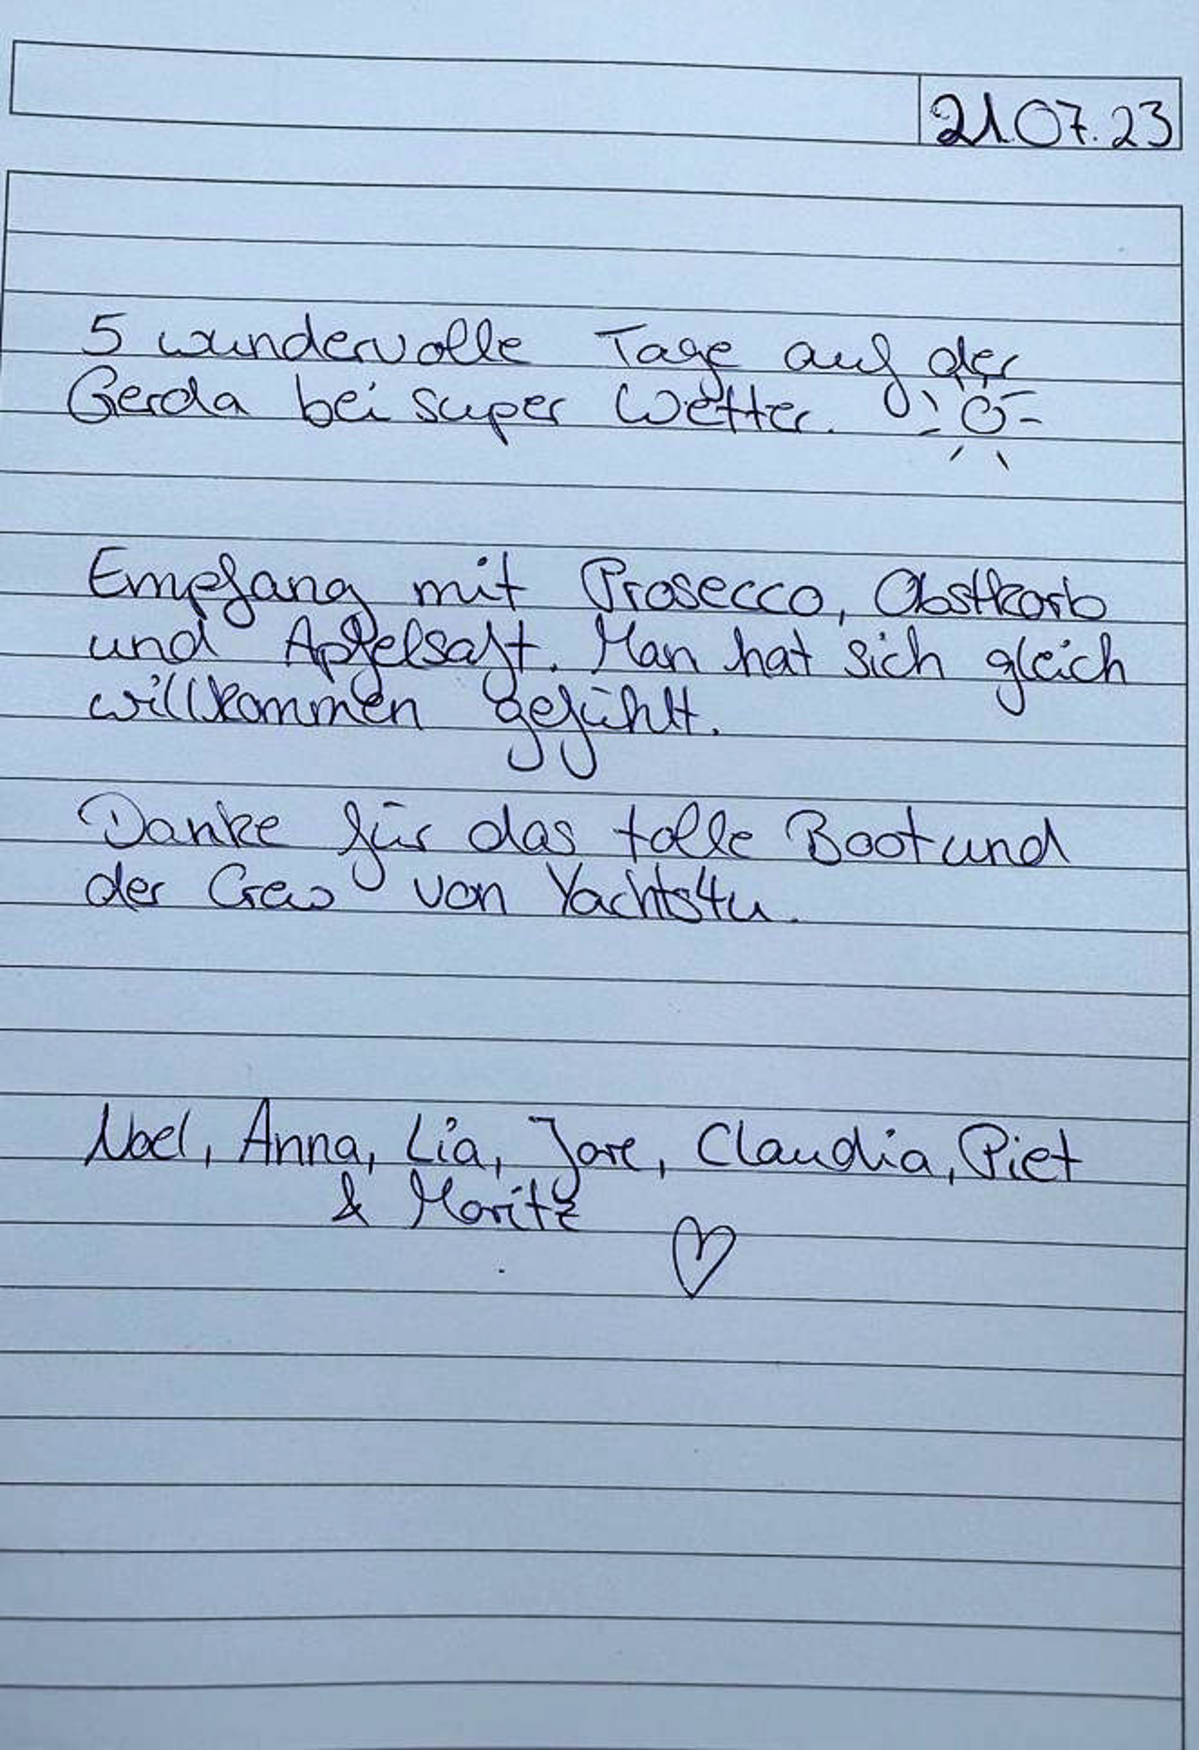 21.07.23
5 wundervolle Tage auf der
Gerda bei super Wetter.
Empfang mit Prosecco, Obstkorb
und Apfelsaft. Man hat sich gleich
willkommen gefühlt.
Danke für das tolle Boot und
der Crew von Yachts4u.
Noel, Anna, Lia, Claudia, Piet
& Moritz